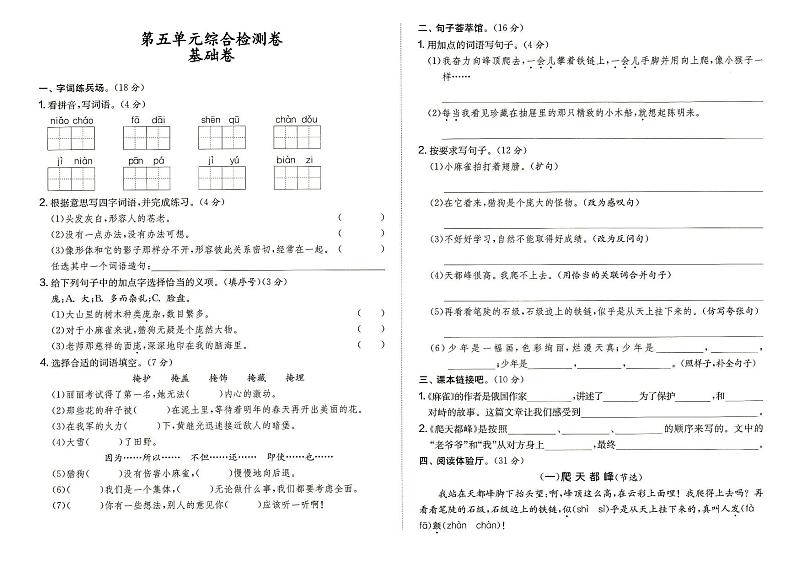 第五单元综合检测卷
基础卷
一、字词练兵场。(18 分)
1. 看拼音,写词语。(4 分)
niǎo cháo fā dāi shēn qū chàn dǒu
jì niàn pān pá jì yú biàn zi
2. 根据意思写四字词语,并完成练习。(4 分)
(1)头发灰白,形容人的苍老。 ( )
(2)没有一点办法,没有办法可想。 ( )
(3)像形体和它的影子那样分不开,形容彼此关系密切,经常在一起。 ( )
任选其中一个词语造句:
3. 给下列句子中的加点字选择恰当的义项。(填序号)(3 分)
庞:A. 大;B. 多而杂乱;C. 脸盘。
(1)大山里的树木种类庞杂,数目繁多。 ( )
(2)对于小麻雀来说,猎狗无疑是个庞然大物。 ( )
(3)老师那慈祥的面庞,深深地印在我的脑海里。 ( )
4. 选择合适的词语填空。(7 分)
掩护 掩盖 掩饰 掩藏 掩埋
(1)丽丽考试得了第一名,她无法( )内心的激动。
(2)那些花的种子被( )在泥土里,等待着明年的春天再开出美丽的花。
(3)在我军的火力( )下,黄继光迅速接近敌人的暗堡。
(4)大雪( )了田野。
因为……所以…… 不但……还…… 即使……也……
(5)猎狗( )没有伤害小麻雀,( )慢慢地向后退。
(6)( )我们是一个集体,( )无论做什么事,我们都要考虑全面。
(7)( )你有一些想法,别人的意见你( )应该听一听啊!
二、句子荟萃馆。(16 分)
1. 用加点的词语写句子。(4 分)
(1)我奋力向峰顶爬去,一会儿攀着铁链上,一会儿手脚并用向上爬,像小猴子一
样……
(2)每当我看见珍藏在抽屉里的那只精致的小木船,就想起陈明来。
2. 按要求写句子。(12 分)
(1)小麻雀拍打着翅膀。(扩句)
(2)在它看来,猎狗是个庞大的怪物。(改为感叹句)
(3)不好好学习,自然不能取得好成绩。(改为反问句)
(4)天都峰很高。我爬不上去。(用恰当的关联词合并句子)
(5)再看看笔陡的石级,石级边上的铁链,似乎是从天上挂下来的。(仿写夸张句)
(6)少年是一幅画,色彩绚丽,烂漫天真;少年是 , ,
;少年是 , , 。(照样子,补全句子)
三、课本链接吧。(10 分)
1.《麻雀》的作者是俄国作家 ,讲述了 为了保护 ,和
对峙的故事。这篇文章让我们感受到 。
2.《爬天都峰》是按照 、 、 的顺序来写的。文中的
“老爷爷”和“我”从对方身上 ,最终 。
四、阅读体验厅。(31 分)
(一)爬天都峰(节选)
我站在天都峰脚下抬头望:啊,峰顶这么高,在云彩上面哩!我爬得上去吗?再
看看笔陡的石级,石级边上的铁链,似(shì sì)乎是从天上挂下来的,真叫人发(fà
fā)颤(zhàn chàn)!